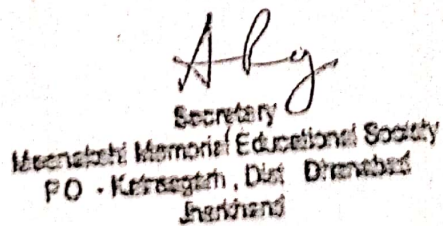 Secretary
Meenakshi Memorial Educational Society
PO - Katrasgarh, Dist Dhanabad
Jharkhand